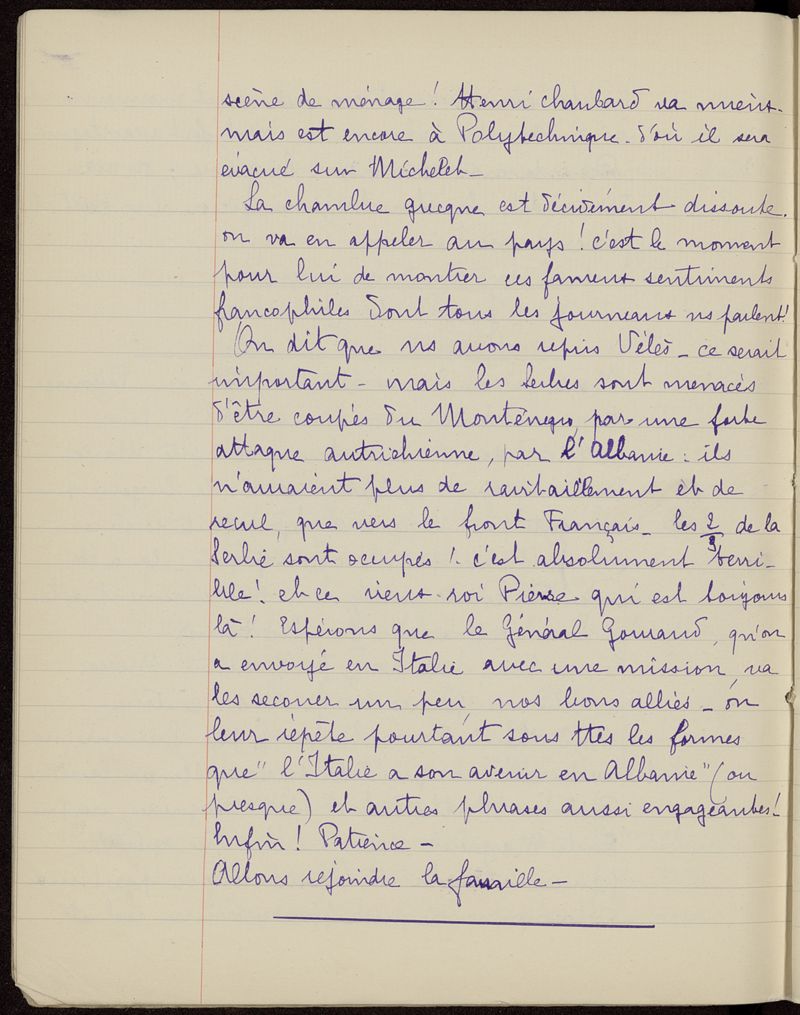 scène de ménage ! Henri Chaubard va mieux.
mais est encore à Polytechnique. d'où il sera
évacué sur Michelet _
La chambre grecque est décidément dissoute.
on va en appeler au pays ! c'est le moment
pour lui de montrer ces fameux sentiments
francophiles dont tous les journeaux ns parlent !
On dit que ns avons repris Vélès _ ce serait
important - mais les Serbes sont menacés
d'être coupés du Monténégro, par une forte
attaque autrichienne, par l'Albanie : ils
n'auraient plus de ravitaillement et de
recul, que vers le front Français _ les 2/3 de la
Serbie sont occupés ! c'est absolument terri-
ble ! et ce vieux roi Pierre qui est toujours
là ! Espérons que le Général Gouraud, qu'on
a envoyé en Italie avec une mission, va
les secouer un peu, nos bons alliés _ on
leur répète pourtant sous ttes les formes
que "l'Italie a son avenir en Albanie" (ou
presque) et autres phrases aussi engageantes !
Enfin ! Patience _
Allons rejoindre la famille _